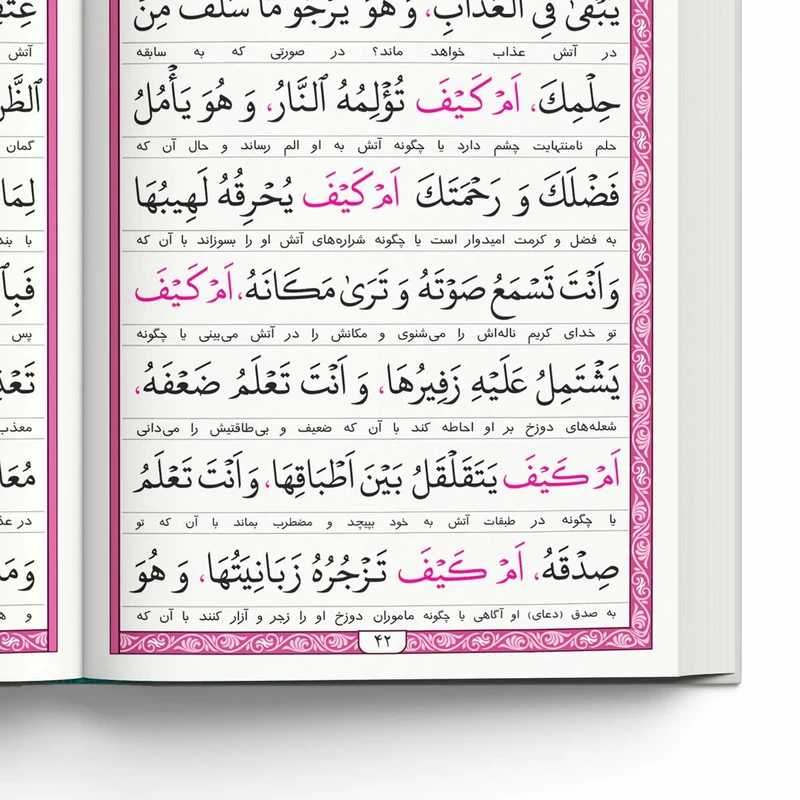 يَبْقىٰ فِى الْعَذابِ، وَ هُوَ يَرْجُو مَا سَلَفَ مِنْ
در آتش عذاب خواهد ماند؟ در صورتی که به سابقه
حِلْمِكَ، اَمْ كَيْفَ تُؤْلِمُهُ ٱلنَّارُ، وَ هُوَ يَأْمُلُ
حلم نامنتهایت چشم دارد یا چگونه آتش به او الم رساند و حال آن که
فَضْلَكَ وَ رَحْمَتَكَ اَمْ كَيْفَ يُحْرِقُهُ لَهِيبُهَا
به فضل و کرمت امیدوار است یا چگونه شراره‌های آتش او را بسوزاند با آن که
وَ اَنْتَ تَسْمَعُ صَوْتَهُ وَ تَرىٰ مَكَانَهُ، اَمْ كَيْفَ
تو خدای کریم ناله‌اش را می‌شنوی و مکانش را در آتش می‌بینی یا چگونه
يَشْتَمِلُ عَلَيْهِ زَفِيرُهَا، وَ اَنْتَ تَعْلَمُ ضَعْفَهُ،
شعله‌های دوزخ بر او احاطه کند با آن که ضعیف و بی‌طاقتیش را می‌دانی
اَمْ كَيْفَ يَتَقَلْقَلُ بَيْنَ اَطْبَاقِهَا، وَ اَنْتَ تَعْلَمُ
یا چگونه در طبقات آتش به خود بپیچد و مضطرب بماند با آن که تو
صِدْقَهُ، اَمْ كَيْفَ تَزْجُرُهُ زَبَانِيَتُهَا، وَ هُوَ
به صدق (دعای) او آگاهی یا چگونه ماموران دوزخ او را زجر و آزار کنند با آن که
۴۲
آتش
گمان
لِمَا
پس
معذب
و